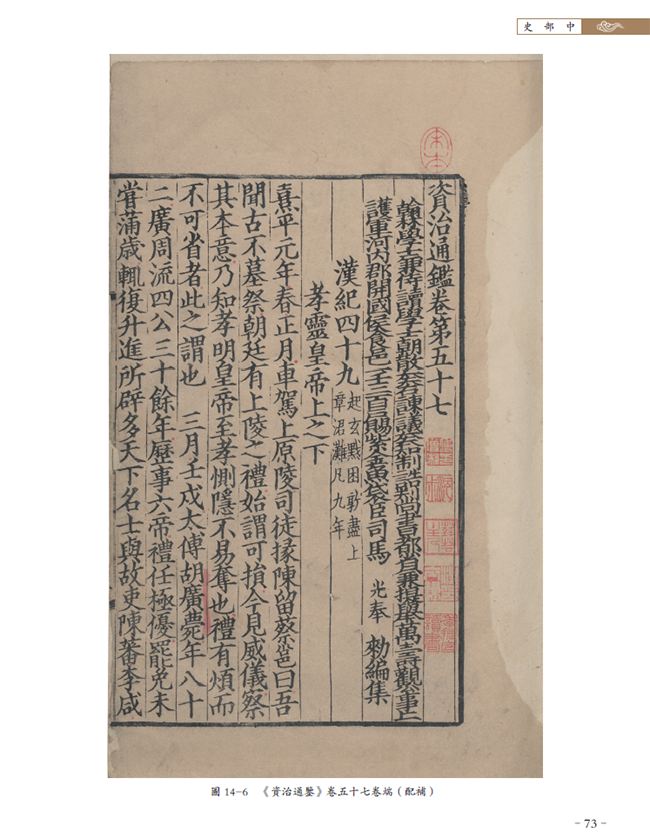 史部中
資治通鑑卷第五十七
翰林學士兼侍讀學士朝散大夫右諫議大夫知制誥判尚書都省兼提舉萬壽觀公事上
護軍河內郡開國侯食邑一千三百戶賜紫金魚袋臣司馬 光奉 勑編集
漢紀四十九 起玄黓困敦盡上
章涒灘凡九年
孝靈皇帝上之下
熹平元年春正月車駕上原陵司徒掾陳留蔡邕曰吾
聞古不墓祭朝廷有上陵之禮始謂可損今見威儀察
其本意乃知孝明皇帝至孝惻隱不易奪也禮有煩而
不可省者此之謂也 三月壬戌太傅胡廣薨年八十
二廣周流四公三十餘年歷事六帝禮任極優罷免未
嘗滿歲輒復升進所辟多天下名士與故吏陳蕃李咸
圖 14-6 《資治通鑒》卷五十七卷端（配補）
- 73 -